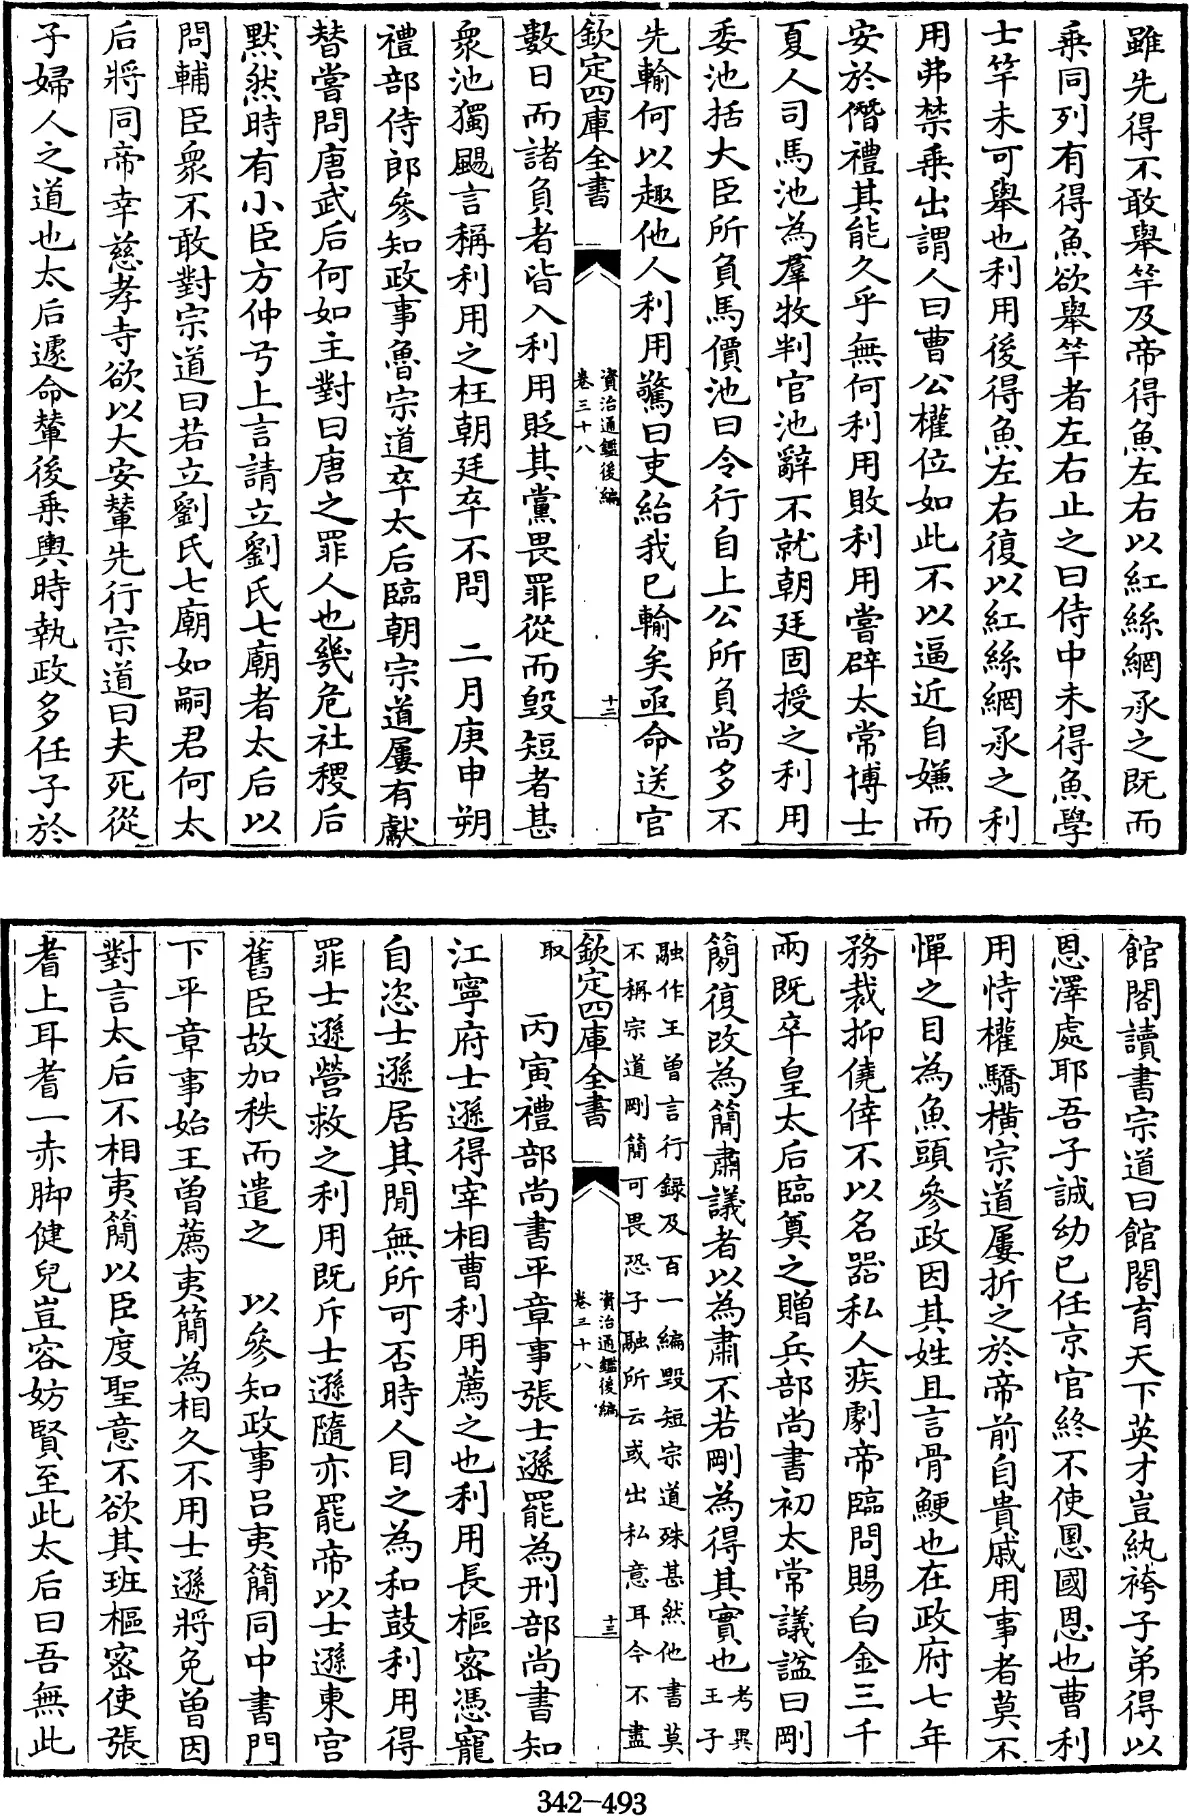 雖先得不敢舉竿及帝得魚左右以紅絲網承之既而
乘同列有得魚欲舉竿者左右止之曰侍中未得魚學
士竿未可舉也利用後得魚左右復以紅絲網承之利
用弗禁乘出謂人曰曹公權位如此不以逼近自嫌而
安於僭禮其能久乎無何利用敗利用嘗辟太常博士
夏人司馬池為羣牧判官池辭不就朝廷固授之利用
委池括大臣所負馬價池曰令行自上公所負尚多不
先輸何以趣他人利用驚曰吏紿我已輸矣亟命送官
欽定四庫全書
資治通鑑後編
卷三十八
十二
數日而諸負者皆入利用貶其黨畏罪從而毀短者甚
衆池獨颺言稱利用之枉朝廷卒不問　二月庚申朔
禮部侍郎參知政事魯宗道卒太后臨朝宗道屢有獻
替嘗問唐武后何如主對曰唐之罪人也幾危社稷后
默然時有小臣方仲弓上言請立劉氏七廟者太后以
問輔臣衆不敢對宗道曰若立劉氏七廟如嗣君何太
后將同帝幸慈孝寺欲以大安輦先行宗道曰夫死從
子婦人之道也太后遽命輦後乘輿時執政多任子於
館閣讀書宗道曰館閣育天下英才豈紈袴子弟得以
恩澤處耶吾子誠幼已任京官終不使恩國恩也曹利
用恃權驕橫宗道屢折之於帝前自貴戚用事者莫不
憚之目為魚頭參政因其姓且言骨鯁也在政府七年
務裁抑僥倖不以名器私人疾劇帝臨問賜白金三千
兩既卒皇太后臨奠之贈兵部尚書初太常議諡曰剛
簡復改為簡肅議者以為肅不若剛為得其實也考異王子
融作王曾言行録及百一編毀短宗道殊甚然他書莫
不稱宗道剛簡可畏恐子融所云或出私意耳今不盡
欽定四庫全書
資治通鑑後編
卷三十八
十三
取　丙寅禮部尚書平章事張士遜罷為刑部尚書知
江寧府士遜得宰相曹利用薦之也利用長樞密憑寵
自恣士遜居其間無所可否時人目之為和鼓利用得
罪士遜營救之利用既斥士遜隨亦罷帝以士遜東宮
舊臣故加秩而遣之　以參知政事呂夷簡同中書門
下平章事始王曾薦夷簡為相久不用士遜將免曾因
對言太后不相夷簡以臣度聖意不欲其班樞密使張
耆上耳耆一赤脚健兒豈容妨賢至此太后曰吾無此
342-493